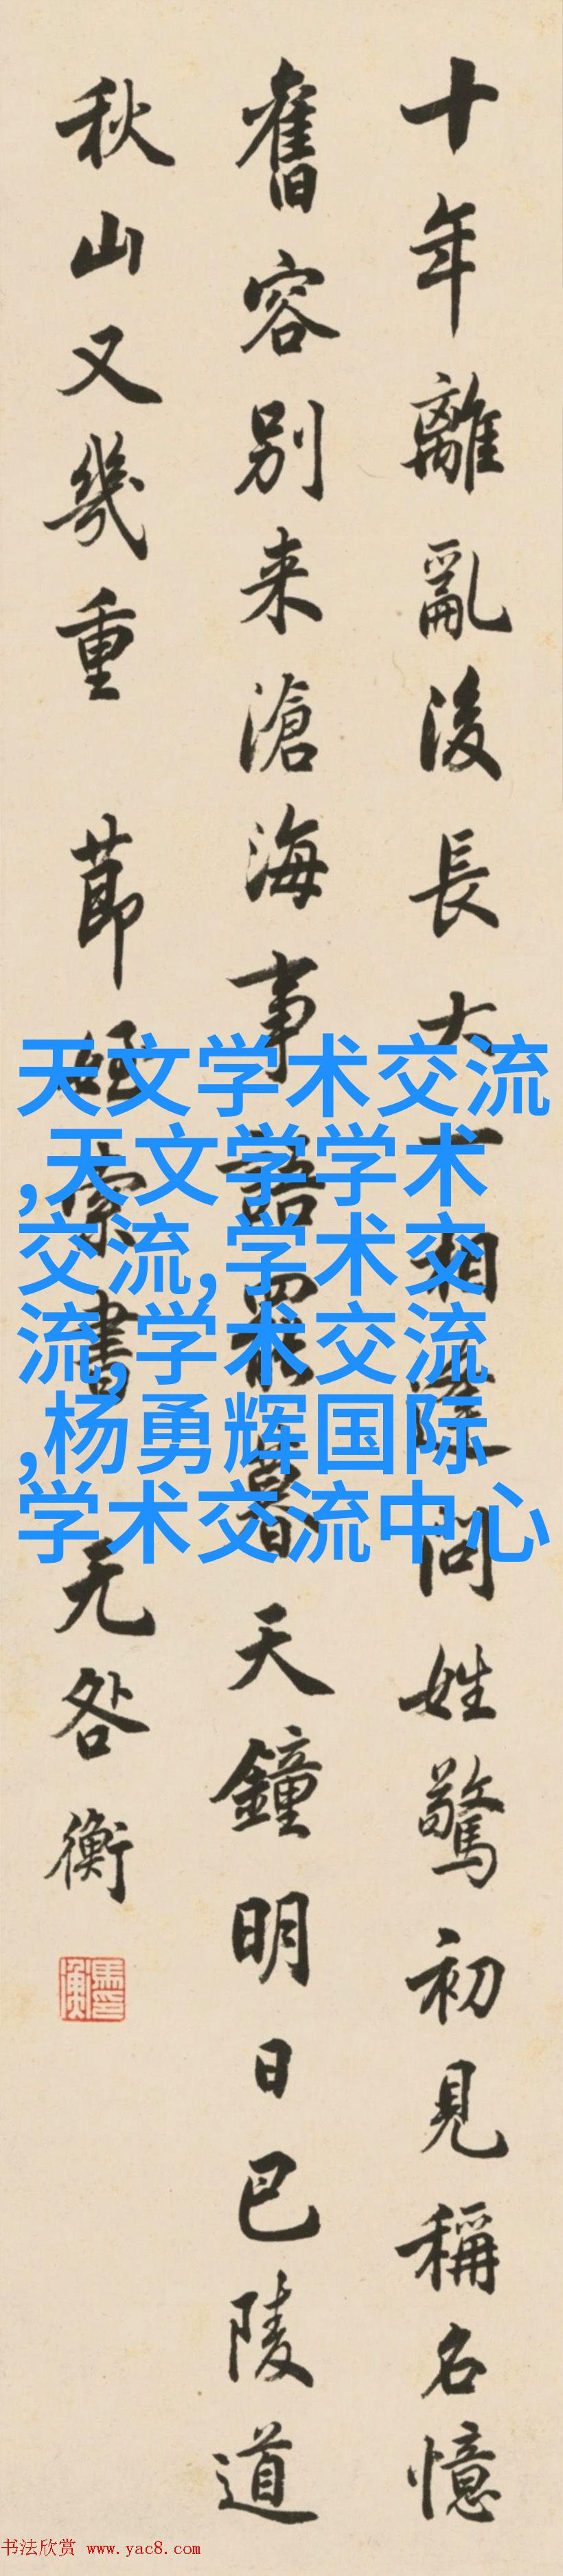 十年離亂後長大一相逢問姓驚初見稱名憶
舊容別来滄海事語罷暮天鐘明日巴陵道
秋山又幾重 莭
索書 无咎衡
天文学术交流
,天文学学术
交流,学术交
流,学术交流
,杨勇辉国际
学术交流中心
书法欣赏 www.yac8.com